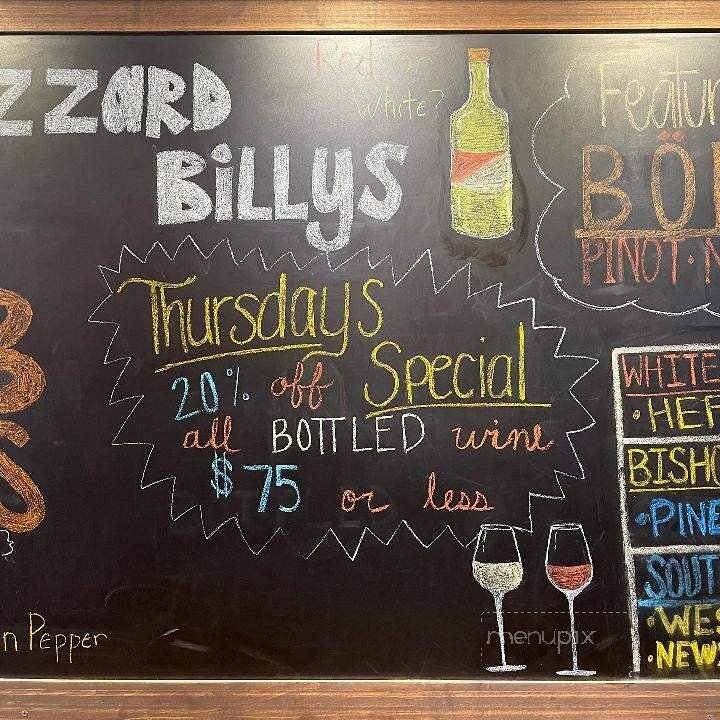 ZZARD
BILLYS
Red or
White?
Featur
BÖ
PINOT·N
Thursdays
Special
20% off
all BOTTLED wine
$75 or less
n Pepper
WHITE
·HEF
BISHO
·PINE
SOUT
·WES
·NEW
menupix